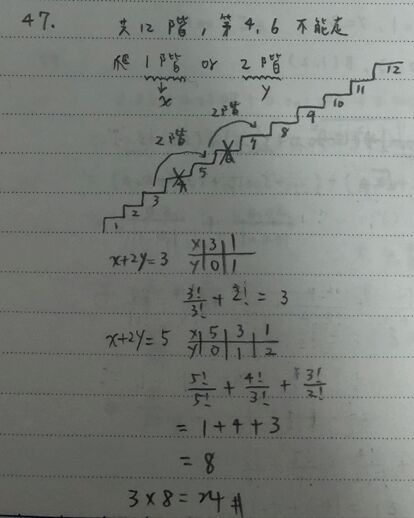 47. 共12階，第4,6不能走
爬 1階 or 2階
x y
2階 2階
1 2 3 4 5 6 7 8 9 10 11 12
x+2y=3 x 3 1
y 0 1
3!/3! + 2! = 3
x+2y=5 x 5 3 1
y 0 1 2
5!/5! + 4!/3! + 3!/2!
= 1+4+3
= 8
3×8=24#